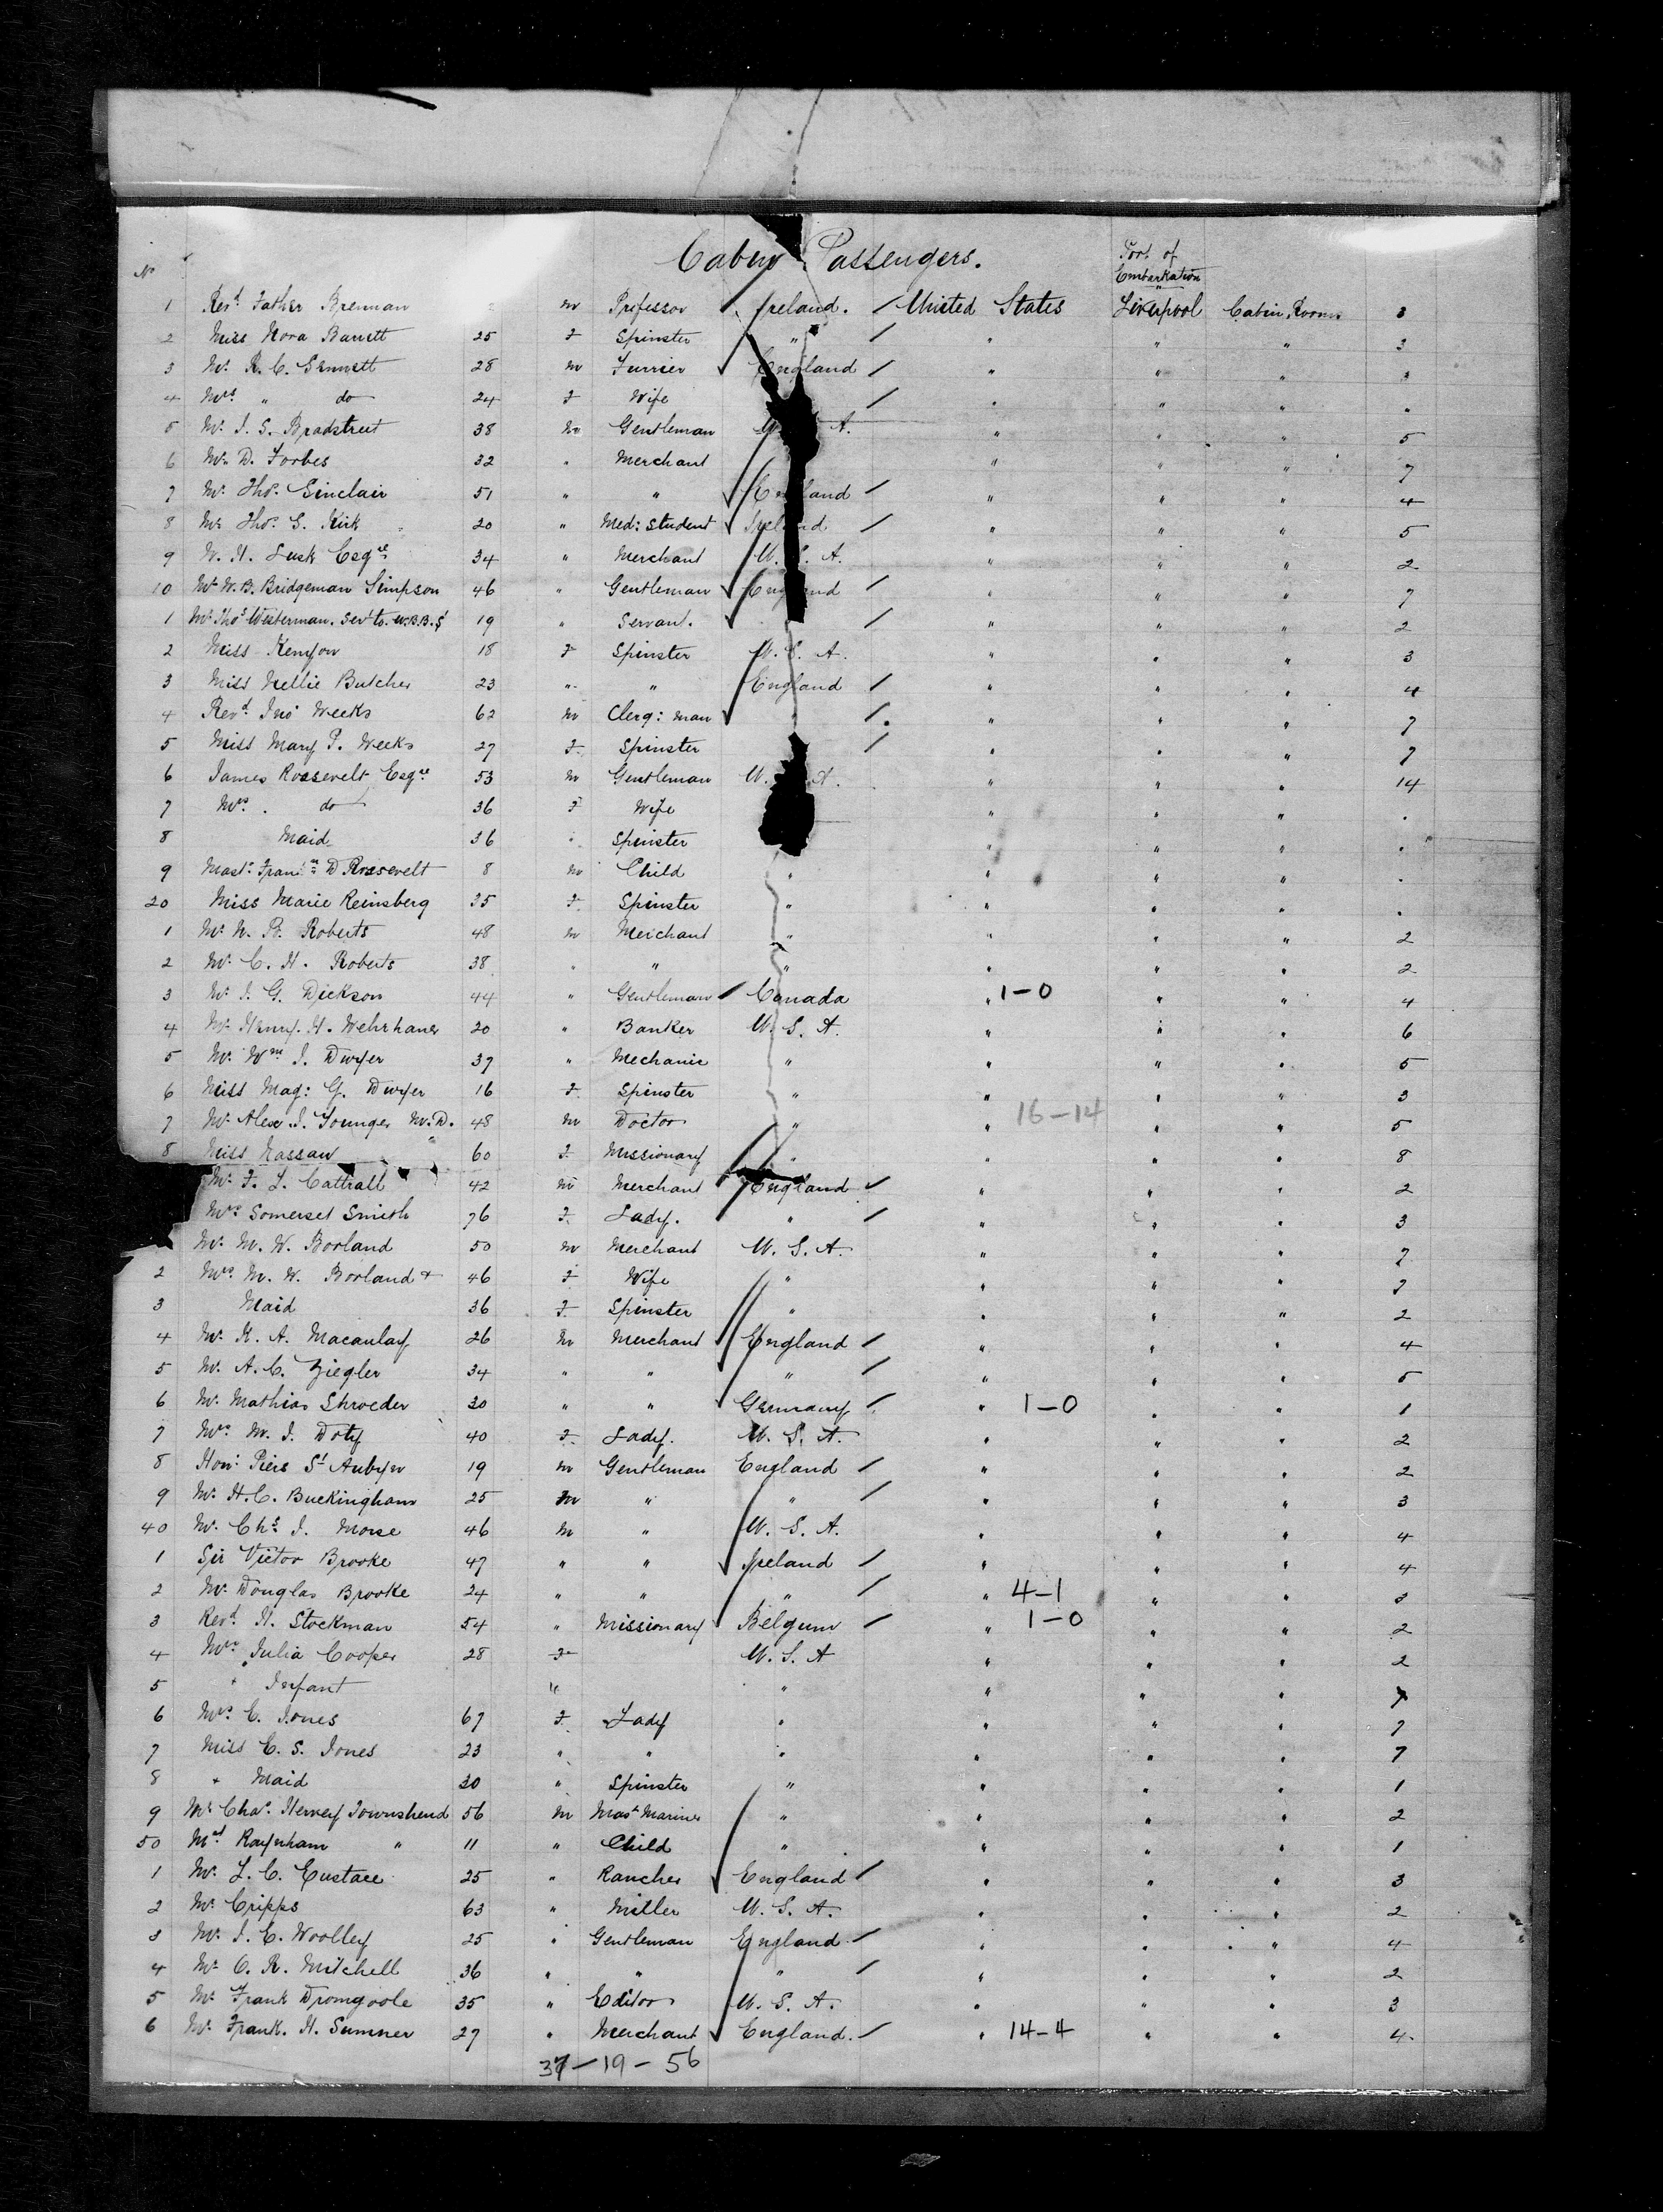 Cabin Passengers.
No Port of Embarkation
1 Revd. Father Brennan m Professor Ireland. / United States Liverpool Cabin Rooms 3
2 Miss Nora Barrett 25 F Spinster " / " " " 3
3 Mr. R. C. Sennett 28 m Furrier England / " " " 3
4 Mrs. " do 24 F Wife / " " " "
5 Mr. J. S. Bradstreet 38 m Gentleman U. A. " " " 5
6 Mr. D. Forbes 32 " Merchant " " " 7
7 Mr. Thos. Sinclair 51 " " England / " " " 4
8 Mr. Thos. G. Kirk 20 " Med: Student Ireland / " " " 5
9 W. H. Lusk Esqre 34 " Merchant U. S. A. " " " 2
10 Mr. W. B. Bridgeman Simpson 46 " Gentleman England / " " " 7
1 Mr. Thos. Westerman. Servt to. W.B.B.S 19 " Servant. / " " " 2
2 Miss Kenyon 18 F Spinster U. S. A. " " " 3
3 Miss Nellie Butcher 23 " " England / " " " 4
4 Revd. Jno Weeks 62 m Clerg: man " / " " " 7
5 Miss Mary P. Weeks 27 F. Spinster / " " " 7
6 James Roosevelt Esqre 53 m Gentleman U. A. " " " 14
7 Mrs. do 36 F Wife " " " "
8 Maid 36 " Spinster " " " "
9 Mast. D Roosevelt 8 m Child " " " " "
20 Miss Marie Reinsberg 35 F. Spinster " " " " "
1 Mr. N. B. Roberts 48 m Merchant " " " " 2
2 Mr. C. H. Roberts 38 " " " " " " 2
3 Mr. J. G. Dickson 44 " Gentleman Canada " 1-0 " " 4
4 Mr. Henry. H. Wehrhane 20 " Banker U. S. A. " " " 6
5 Mr. Wm. J. Dwyer 37 " Mechanic " " " " 5
6 Miss Mag: G. Dwyer 16 F. Spinster " " " " 3
7 Mr. Alex. J. Younger M.D. 48 m Doctor " " 16-14 " " 5
8 Miss Nassau 60 F. Missionary " " " " 8
Mr. F. L. Cattrall 42 m Merchant England / " " " 2
Mrs Somerset Smith 76 F. Lady. " / " " " 3
Mr. M. W. Borland 50 m Merchant U. S. A. " " " 7
2 Mrs M. W. Borland + 46 F Wife " " " " 7
3 Maid 36 F. Spinster " " " " 2
4 Mr. K. A. Macaulay 26 m Merchant England / " " " 4
5 Mr. A. C. Ziegler 34 " " " / " " " 5
6 Mr. Mathias Shroeder 30 " " Germany / " 1-0 " " 1
7 Mrs M. J. Doty 40 F. Lady. U. S. A. " " " 2
8 Hon: Piers St Aubyn 19 m Gentleman England / " " " 2
9 Mr. H. C. Buckingham 25 m " " / " " " 3
40 Mr. Chs. J. Morse 46 m " U. S. A. " " " 4
1 Sir Victor Brooke 47 " " Ireland / " " " 4
2 Mr. Douglas Brooke 24 " " " / " 4-1 " " 3
3 Revd. H. Stockman 54 " Missionary Belgum / " 1-0 " " 2
4 Mrs Julia Cooper 28 F U. S. A " " " 2
5 " Infant " " " " "
6 Mrs. C. Jones 67 F. Lady " " " " 7
7 Miss E. S. Jones 23 " " " " " " 7
8 + Maid 30 " Spinster " " " " 1
9 Mr Chas. Hervey Townshend 56 m Mast. Mariner " " " " 2
50 Mst Raynham " 11 " Child " " " " 1
1 Mr. L. C. Eustace 25 " Rancher England / " " " 3
2 Mr. Cripps 63 " Miller U. S. A. " " " 2
3 Mr. J. E. Woolley 25 " Gentleman England / " " " 4
4 Mr. C. R. Mitchell 36 " " " / " " " 2
5 Mr. Frank Dromgoole 35 " Editor U. S. A. " " " 3
6 Mr. Frank. H. Sumner 27 " Merchant England. / " 14-4 " " 4.
37-19-56